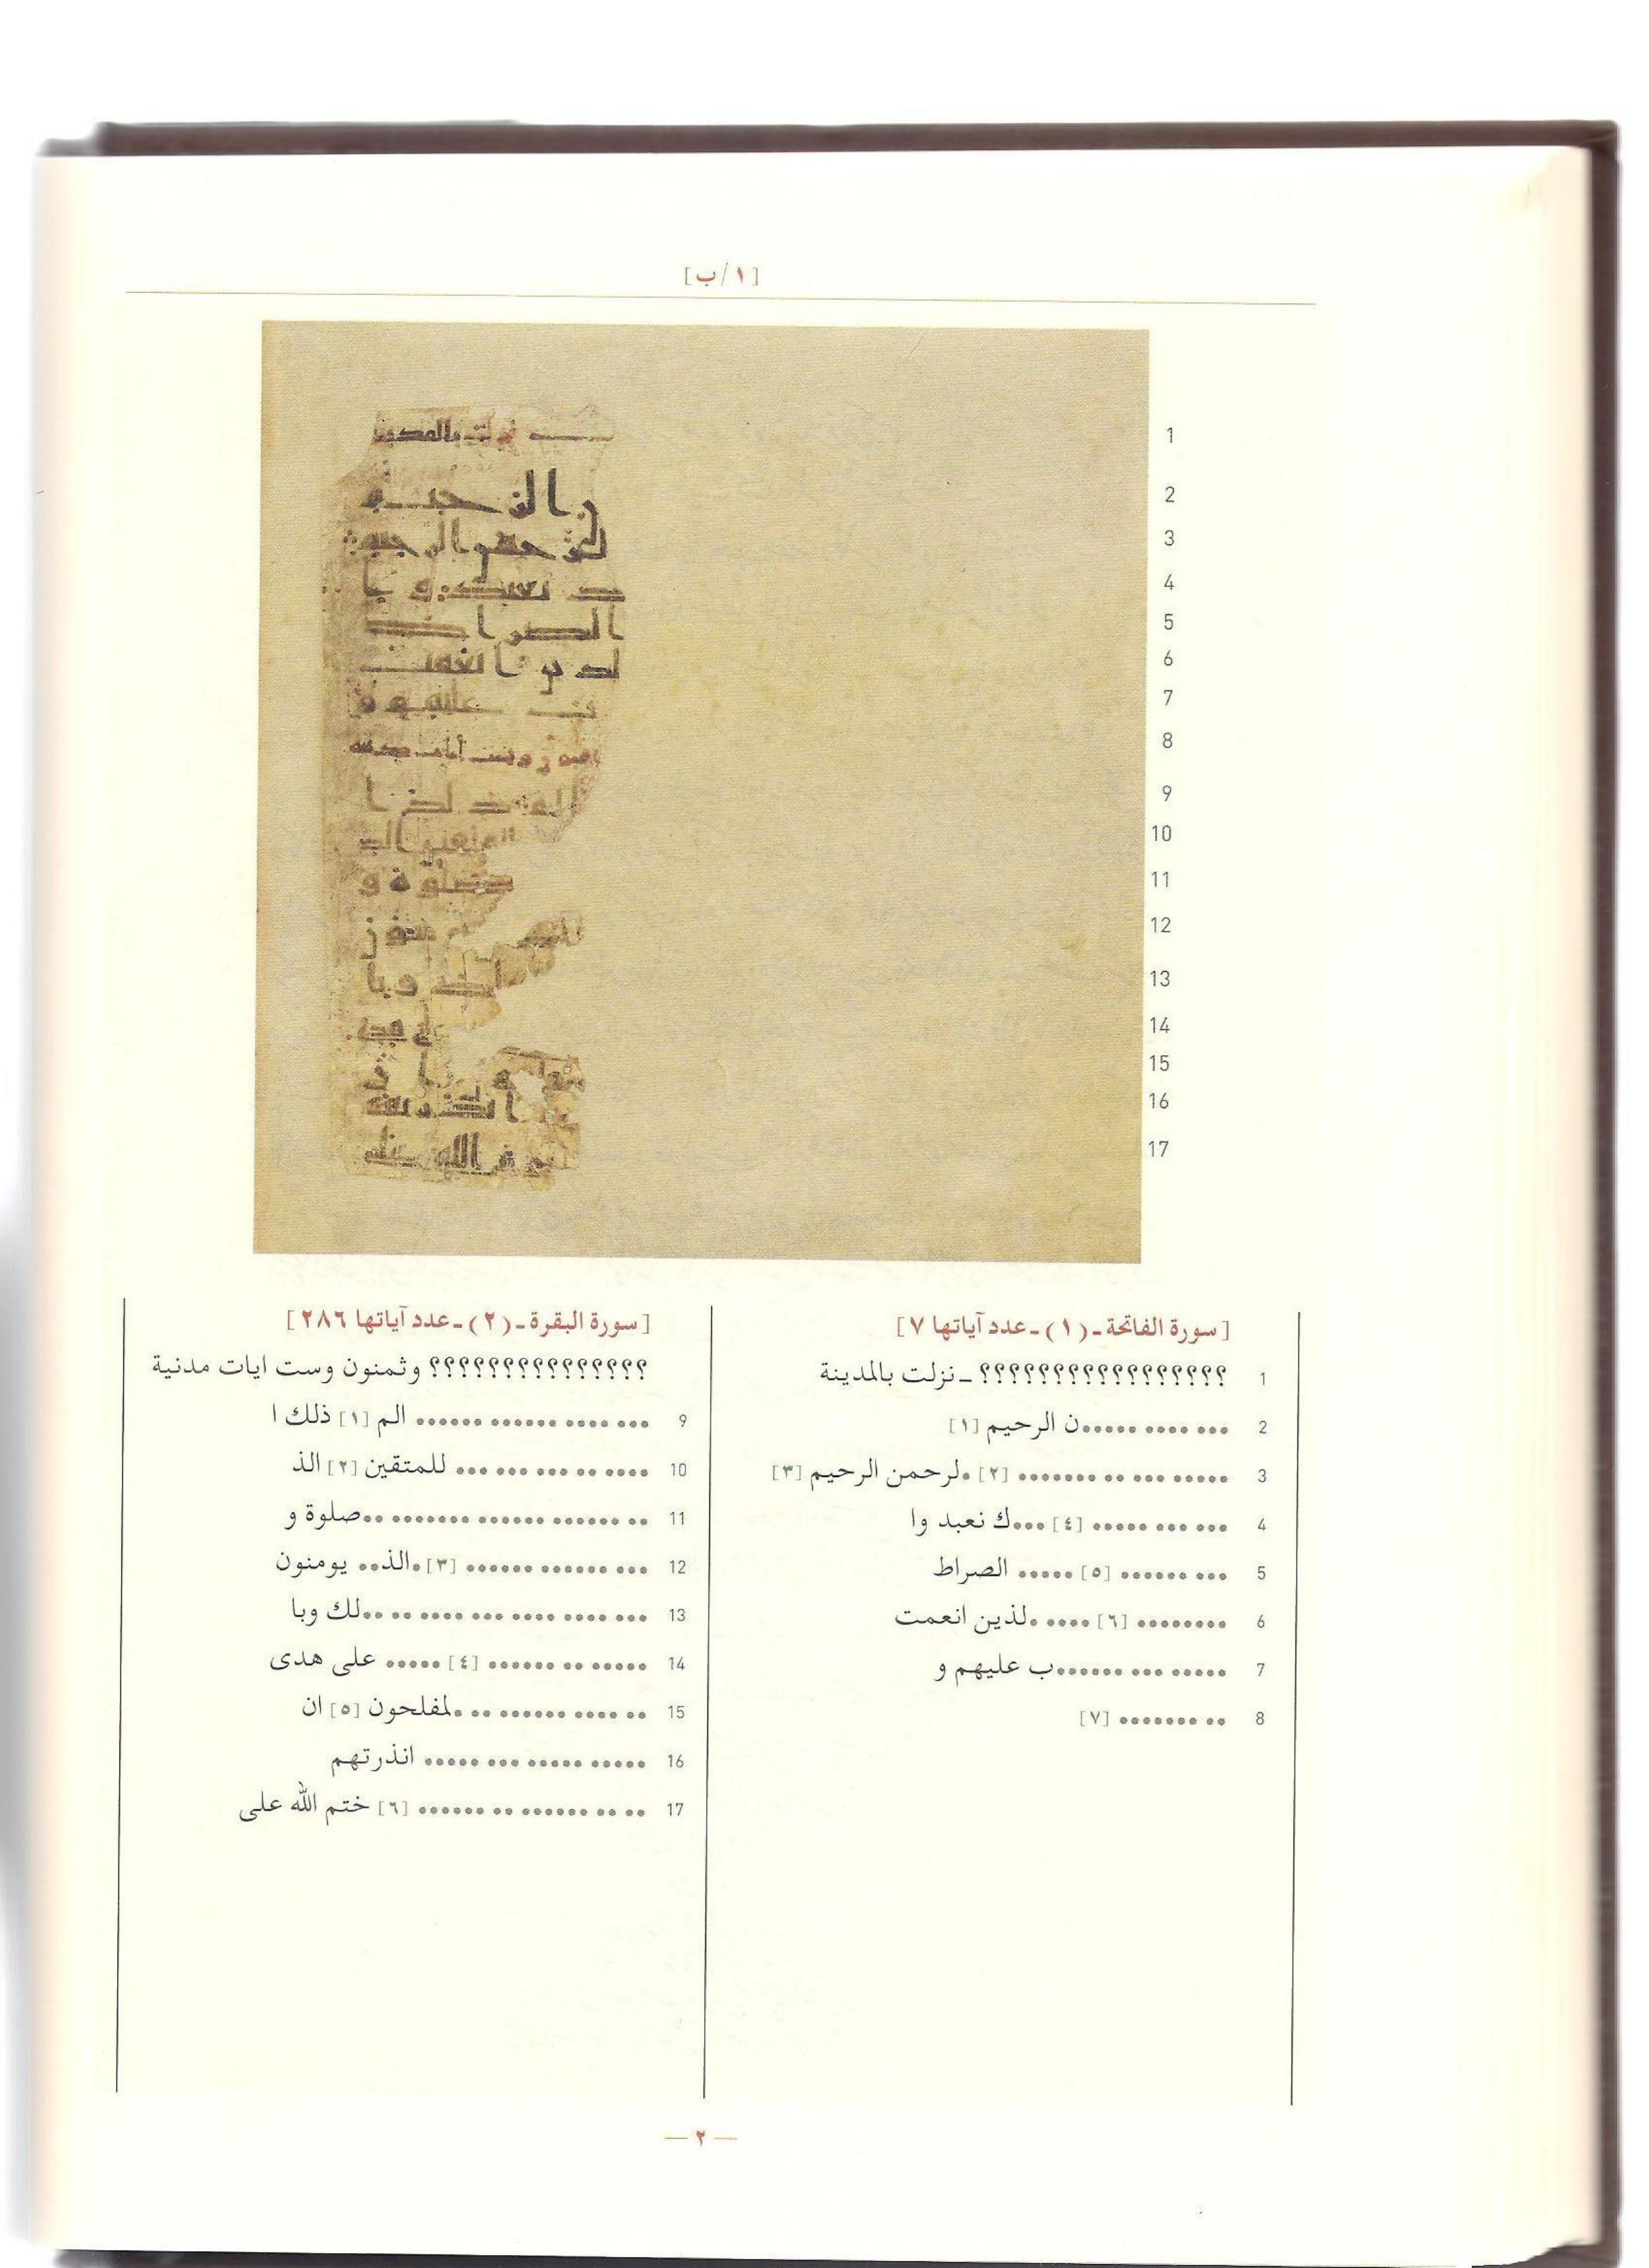 [١/ب]
1
2
3
4
5
6
7
8
9
10
11
12
13
14
15
16
17
[سورة الفاتحة ـ (١) ـ عدد آياتها ٧]
1 ؟؟؟؟؟؟؟؟؟؟؟؟؟؟؟؟؟ ـ نزلت بالمدينة
2 ••• •••• •••••ن الرحيم [١]
3 ••••• ••• •• ••••••• [٢] •لرحمن الرحيم [٣]
4 ••• ••• ••••• [٤] •••ك نعبد وا
5 ••• •••••• [٥] ••••• الصراط
6 •••••••• [٦] •••• •لذين انعمت
7 ••••• ••• ••••••ب عليهم و
8 •• ••••••• [٧]
[سورة البقرة ـ (٢) ـ عدد آياتها ٢٨٦]
؟؟؟؟؟؟؟؟؟؟؟؟؟؟؟ وثمنون وست ايات مدنية
9 ••• •••• •••••• •••••• الم [١] ذلك ا
10 •••• •• ••• ••• ••• للمتقين [٢] الذ
11 •• •••••• •••••• ••••••• ••صلوة و
12 ••• •••••• •••••• [٣] •الذ•• يومنون
13 ••• •••• •••• ••• •••• •• ••لك وبا
14 ••••• •• •••••• [٤] ••••• على هدى
15 •• •••• •••••• •• •لمفلحون [٥] ان
16 ••••• ••••• ••• ••••• انذرتهم
17 •• •• •••••• •• •••••• [٦] ختم الله على
— ٢ —